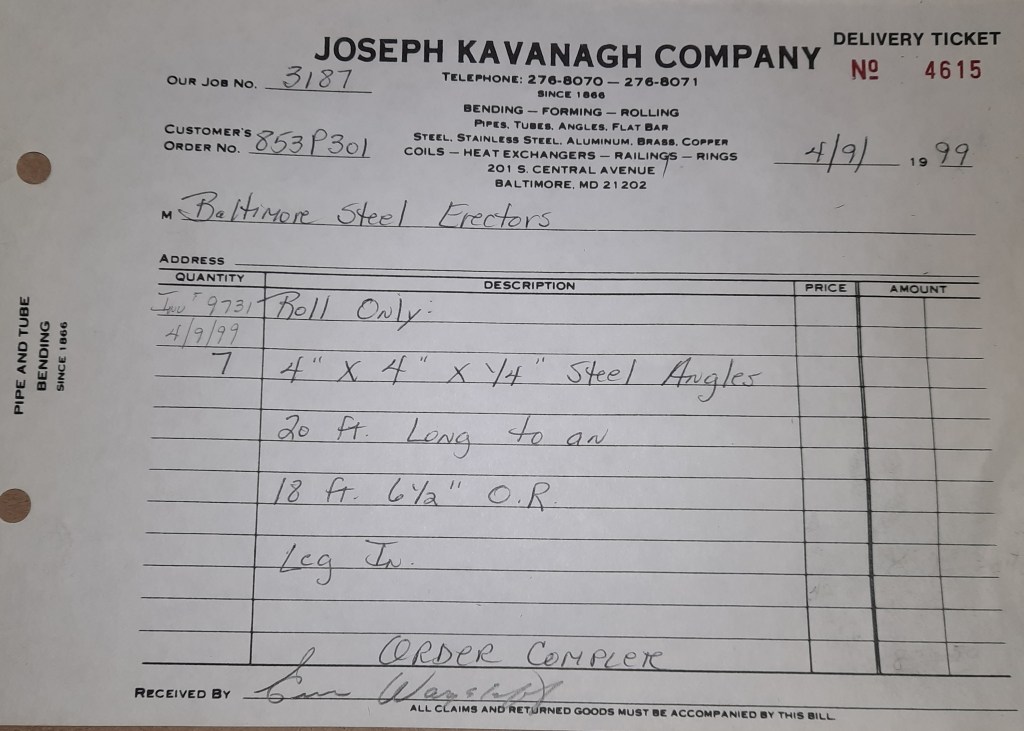 JOSEPH KAVANAGH COMPANY
DELIVERY TICKET
Nº 4615
OUR JOB NO. 3187
TELEPHONE: 276-8070 — 276-8071
SINCE 1866
BENDING — FORMING — ROLLING
PIPES, TUBES, ANGLES, FLAT BAR
STEEL, STAINLESS STEEL, ALUMINUM, BRASS, COPPER
COILS — HEAT EXCHANGERS — RAILINGS — RINGS
201 S. CENTRAL AVENUE
BALTIMORE, MD 21202
CUSTOMER'S
ORDER NO. 853P301
4/9/ 19 99
M Baltimore Steel Erectors
ADDRESS
QUANTITY DESCRIPTION PRICE AMOUNT
9731 Roll Only:
4/9/99
7 4" X 4" X 1/4" Steel Angles
20 ft. Long to an
18 ft. 6 1/2" O.R.
Leg In.
ORDER COMPLETE
RECEIVED BY
ALL CLAIMS AND RETURNED GOODS MUST BE ACCOMPANIED BY THIS BILL
PIPE AND TUBE
BENDING
SINCE 1866